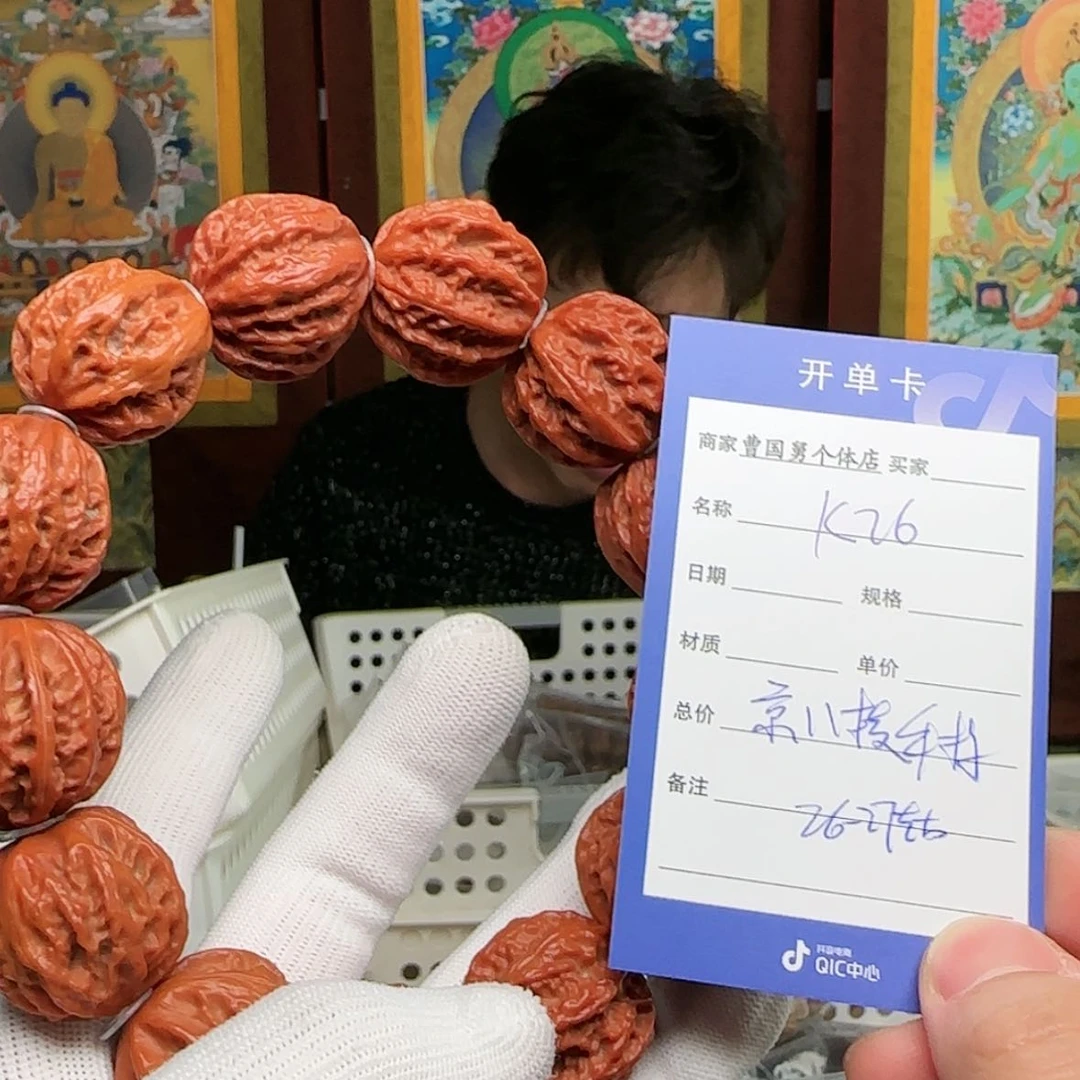 开单卡
商家曹国舅个体店 买家
名称 K26
日期 规格
材质 单价
总价 京八棱手持
备注 26-27钻
抖音电商
QIC中心